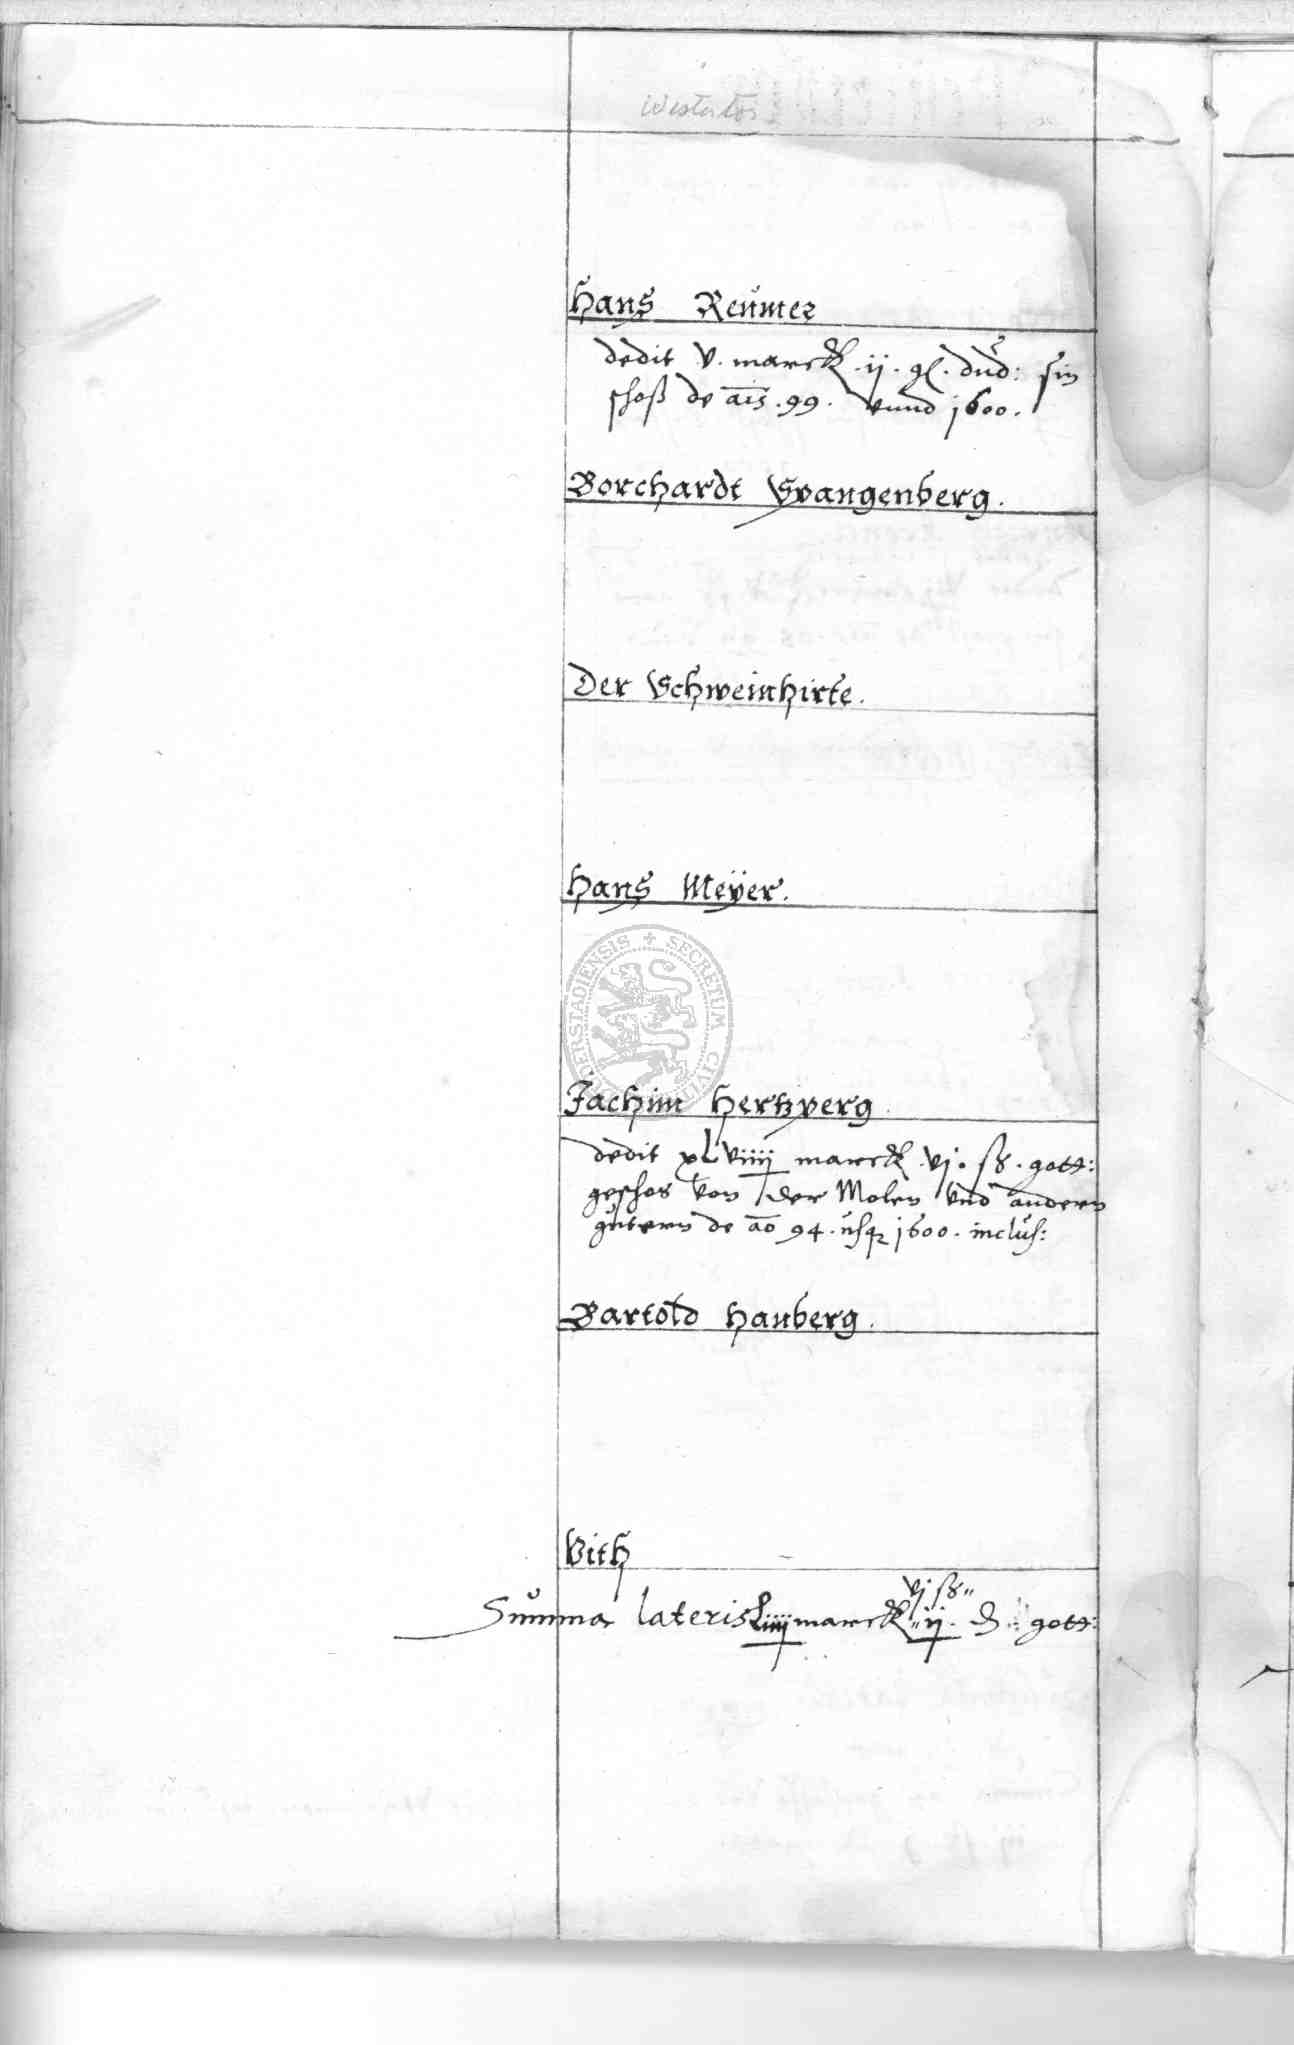 Westertor
Hans Reumer
dedit v. marck .ij. gl. dud: sin
schoß de ais .99. vnnd 1600.
Borchardt Spangenberg.
Der Schweinhirte.
Hans Meÿer.
DERSTADIENSIS + SECRETUM CIVIT
Jachim Hertzberg.
dedit xLviiij marck .vj. ß. gott:
geschos von der Molen vnd andern
gutern de ao 94. usq 1600. inclus:
Bartold Hauberg.
Vith
vj ß"
Summa lateris Liiij marck "ij. d. gott: